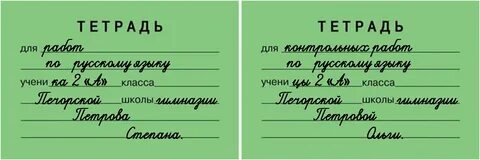 ТЕТРАДЬ
для работ
по русскому языку
учени ка 2 «А» класса
Печорской школы гимназии
Петрова
Степана.
ТЕТРАДЬ
для контрольных работ
по русскому языку
учени цы 2 «А» класса
Печорской школы гимназии
Петровой
Ольги.